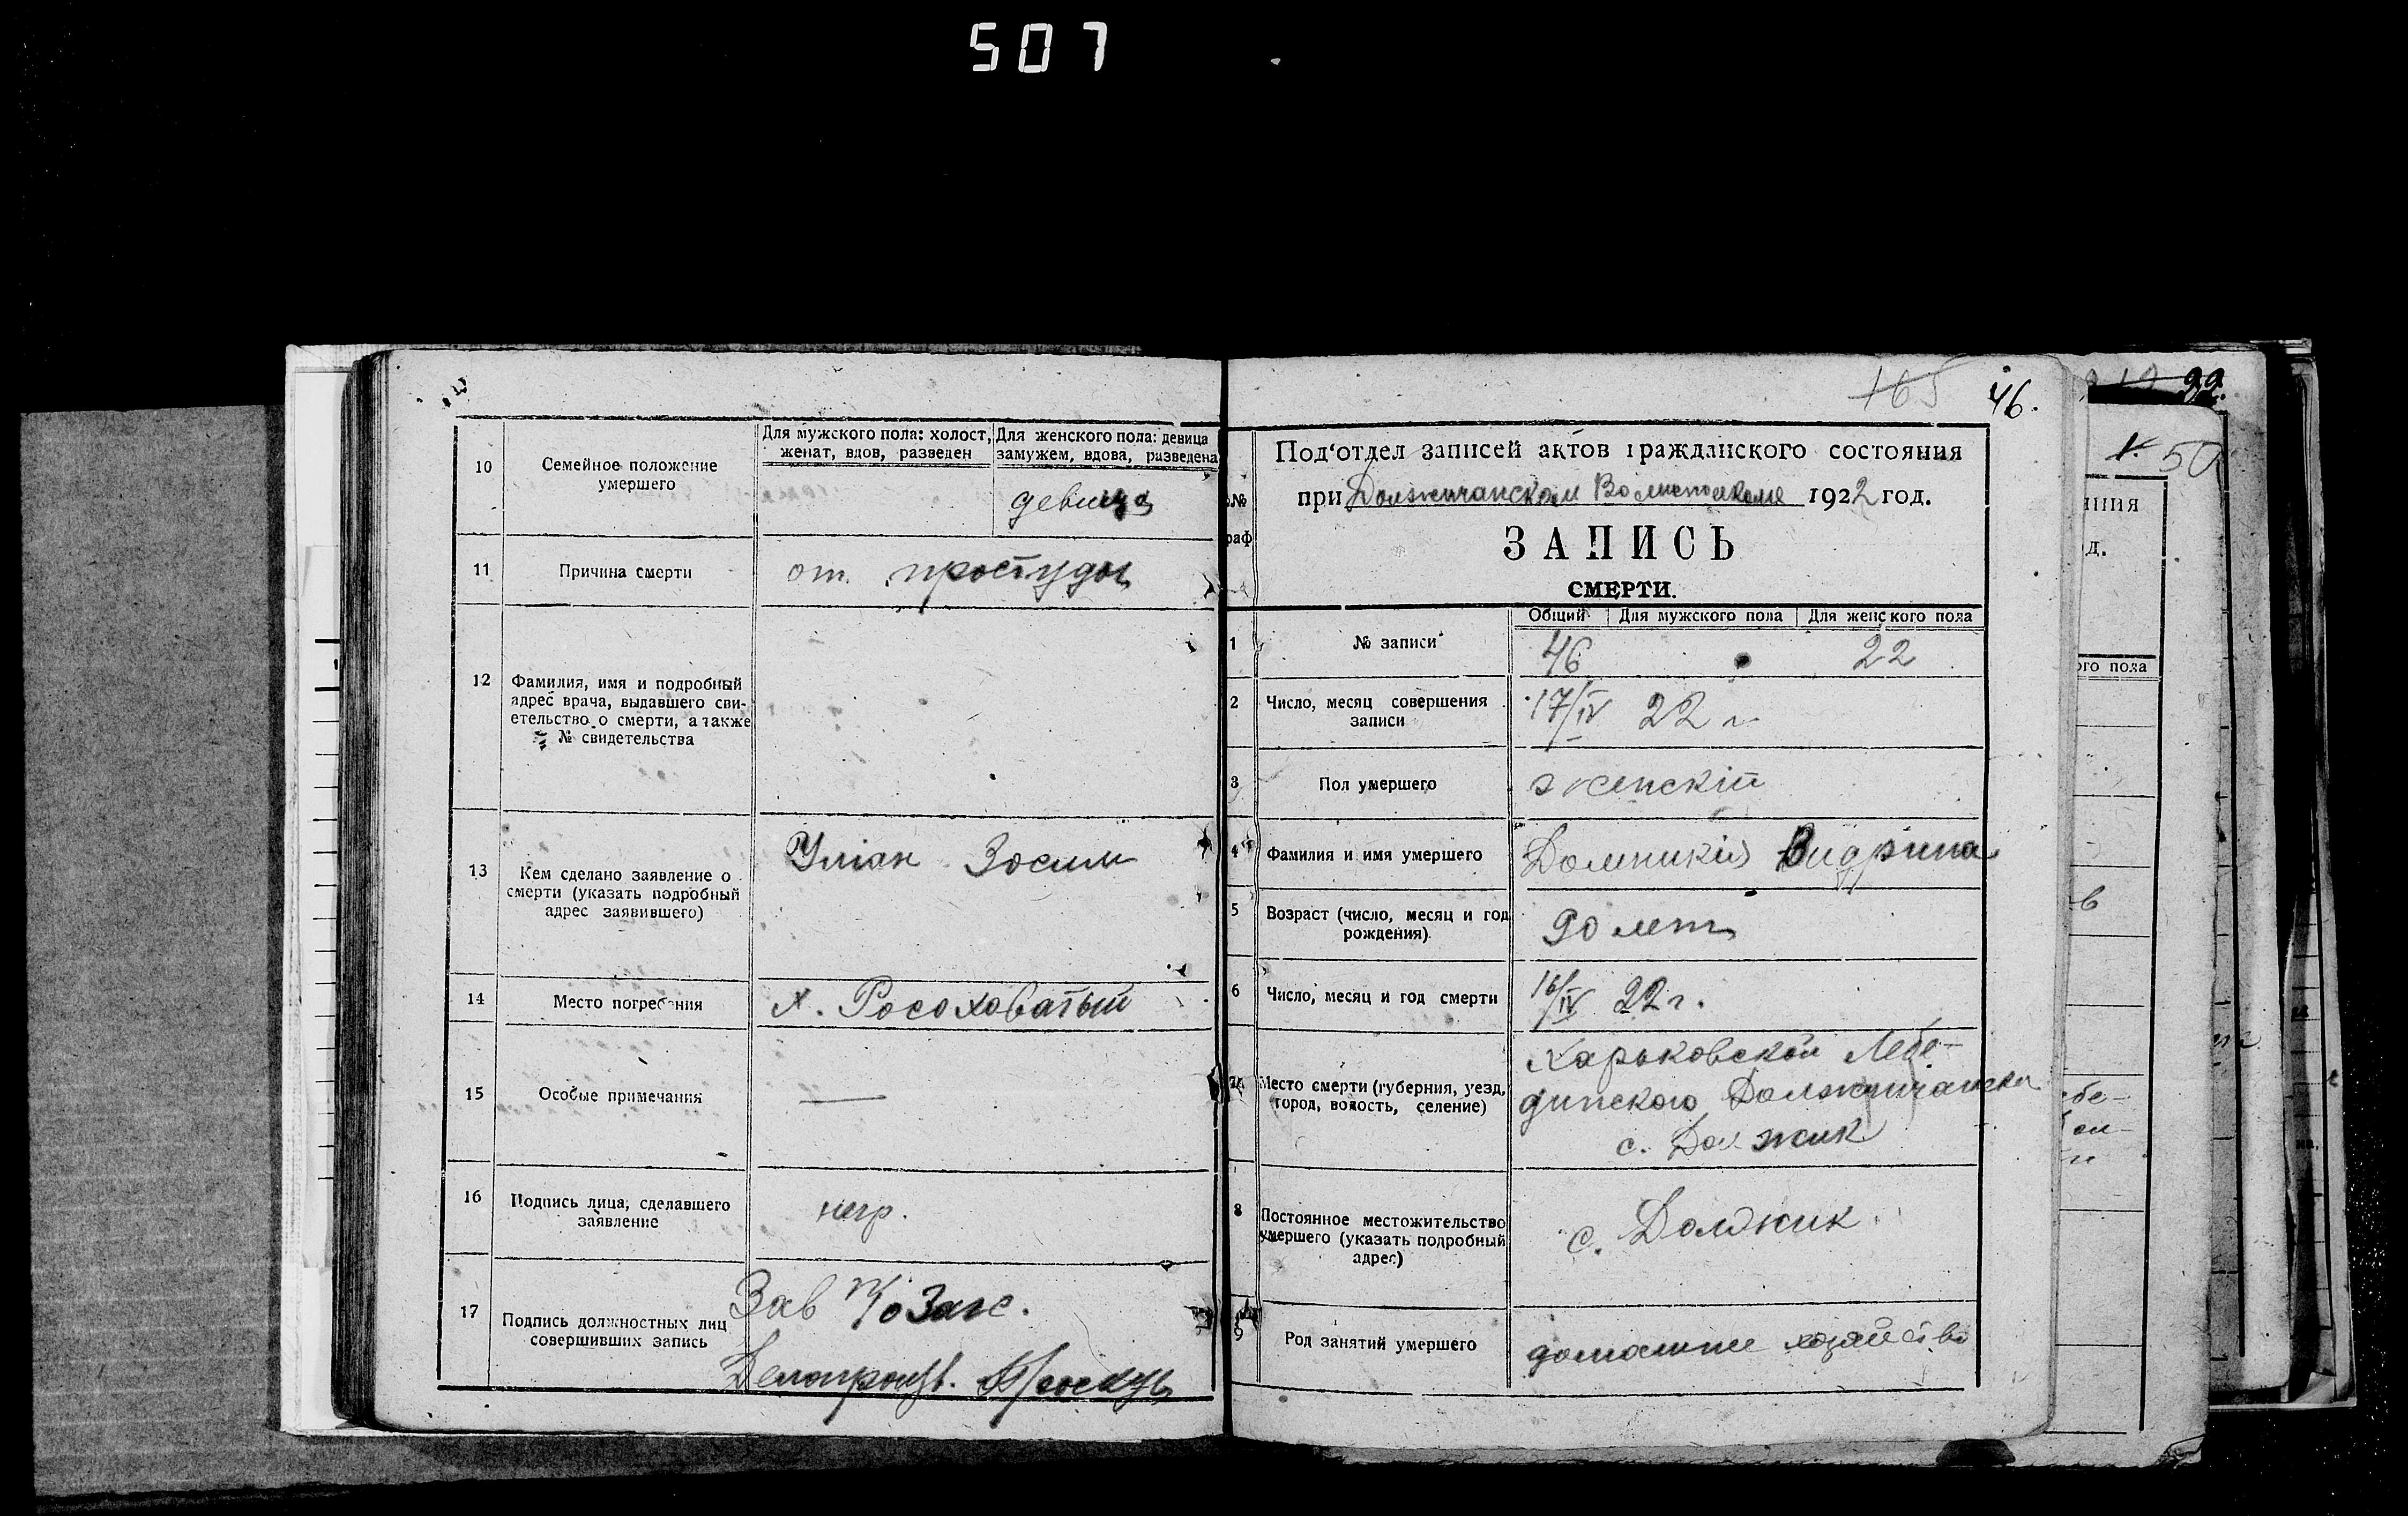 507
10
Семейное положение
умершего
Для мужского пола: холост,
женат, вдов, разведен
Для женского пола: девица
замужем, вдова, разведена
девица
11
Причина смерти
от простуды
12
Фамилия, имя и подробный
адрес врача, выдавшего сви-
етельство о смерти, а также
№ свидетельства
13
Кем сделано заявление о
смерти (указать подробный
адрес заявившего)
Улiан Зосим
14
Место погребения
х. Росоховатый
15
Особые примечания
—
16
Подпись лица, сделавшего
заявление
негр.
17
Подпись должностных лиц
совершивших запись
Зав п/о Загс.
Делопроизв.
165
46.
Под'отдел записей актов гражданского состояния
при Должичанском Волисполкоме 1922 год.
ЗАПИСЬ
СМЕРТИ.
№
раф
Общий
Для мужского пола
Для женского пола
1
№ записи
46
22
2
Число, месяц совершения
записи
17/IV 22 г.
3
Пол умершего
женскiй
4
Фамилия и имя умершего
Домникия Видрина
5
Возраст (число, месяц и год
рождения)
90 лет
6
Число, месяц и год смерти
16/IV 22 г.
7
Место смерти (губерния, уезд,
город, волость, селение)
Харьковской Лебе-
динского Должичанска
с. Должик
8
Постоянное местожительство
умершего (указать подробный
адрес)
с. Должик
9
Род занятий умершего
домашнее хозяйство
22.
50
ния
д.
ого пола
ебе-